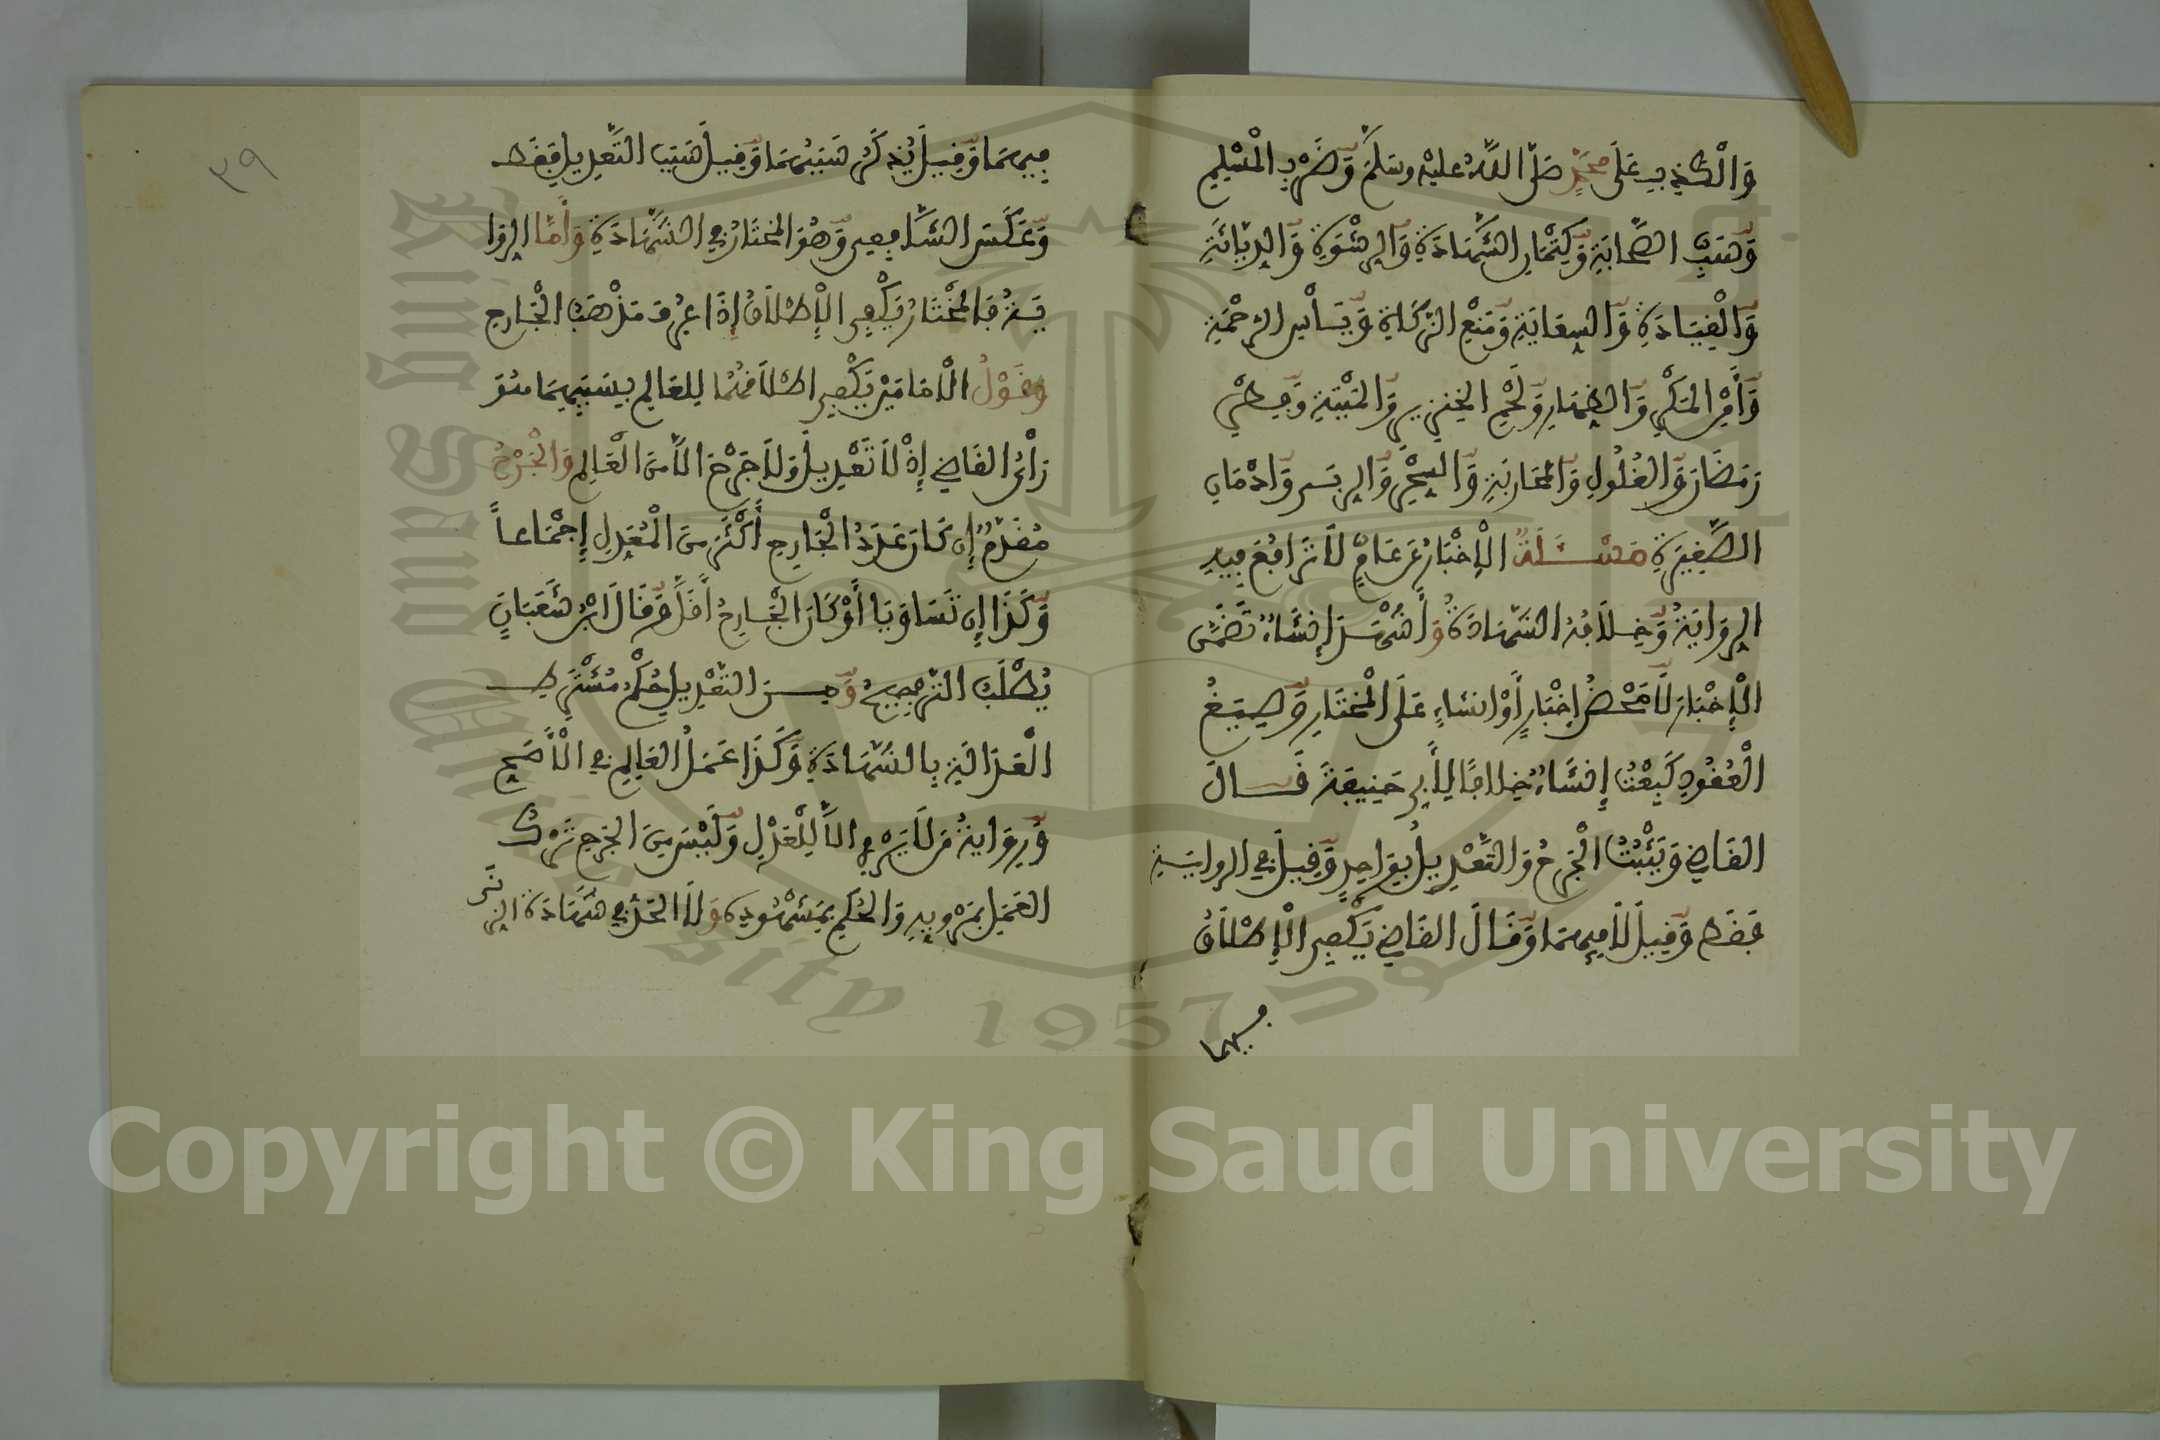 وَالْكَذِبِ عَلَى مُحَمَّدٍ صَلَّى اللَّهُ عليْهِ وسَلَّمَ وَّضَرْبِ الْمُسْلِمِ
وَّسَبِّ الصَّحَابَةِ وَكِتْمَانِ الشَّهَادَةِ وَّالرِّشْوَةِ وَّالدِّيَاثَةِ
وَّالْقِيَادَةِ وَّالسِّعَايَةِ وَمَنْعِ الزَّكَاةِ وَيَأْسِ الرَّحْمَةِ
وَّأَمْنِ الْمَكْرِ وَّالظِّهَارِ وَلَحْمِ الْخِنْزِيرِ وَّالْمَيْتَةِ وَّفِطْرِ
رَمَضَانَ وَّالْغُلُولِ وَالْمُحَارَبَةِ وَّالسِّحْرِ وَّالرِّبَى وَّادْمَانِ
الصَّغِيرَةِ مَسْئَلَةٌ الْإِخْبَارُ عَن عَامٍّ لَا تَرَافُعَ فِيهِ
الرِّوَايَةُ وَّخِلَافُهُ الشَّهَادَةُ وَأَشْهَدُ إِنْشَاءٌ تَضَمَّنَ
الْإِخْبَارَ لَّا مَحْضُ إِخْبَارٍ أَوْ انشاءٍ عَلَى الْمُخْتَارِ وَّصِيَغُ
الْعُقُودِ كَبِعْتُ إِنْشَاءٌ خِلَافًا لِأَبِي حَنِيفَةَ قَالَ
الْقَاضِي وَيَثْبُتُ الْجَرْحُ وَالتَّعْدِيلُ بِوَاحِدٍ وَّقِيلَ فِي الرواية
فَقَط وَّقِيلَ لَا فِيهِمَا وَّقَالَ الْقَاضِي يَكْفِي الْإِطْلَاقُ
فيهما
٣٩
فِيهِمَا وَّقِيلَ يُذْكَرُ سَبَبُهُمَا وَّقِيلَ سَبَبُ التَّعْدِيلِ فَقَط
وَّعَكَسَ الشَّافِعِي وَّهُوَ الْمُخْتَارُ فِي الشَّهَادَةِ وَأَمَّا الرِّوَا
يَةُ فَالْمُخْتَارُ يَكْفِي الْإِطْلَاقُ إِذَا عُرِفَ مَذْهَبُ الْجَارِحِ
وَقَوْلُ الْإِمَامَيْنِ يَكْفِي اطْلَاقُهُمَا لِلْعَالِمِ بِسَبَبِهِمَا هُوَ
رَأْيُ الْقَاضِي إِذْ لَا تَعْدِيلَ وَلَا جَرْحَ الَّا مِنَ الْعَالِمِ وَالْجَرْحُ
مُقَدَّمٌ إِن كَانَ عَدَدُ الْجَارِحِ أَكْثَرَ مِنَ الْمُعَدِّلِ إِجْمَاعاً
وَّكَذَا إِن تَسَاوَيَا أَوْ كَانَ الْجَارِحُ أَقَلَّ وَّقَالَ ابْنُ شَعْبَانٍ
يُطْلَبُ التَّرْجِيحُ وَّمِنَ التَّعْدِيلِ حُكْمُ مُشْتَرِطِ
الْعَدَالَةِ بِالشَّهَادَةِ وَّكَذَا عَمَلُ الْعَالِمِ فِي الْأَصَحِّ
وَّرِوَايَةُ مَن لَا يَرْوِي الَّا لِلْعَدْلِ وَّلَيْسَ مِنَ الْجَرْحِ تَرْكُ
الْعَمَلِ بِمَرْوِيِّهِ وَالْحُكْمِ بِمَشْهُودِهِ وَلَا الْحَدُّ فِي شَهَادَةِ الزِّنَى